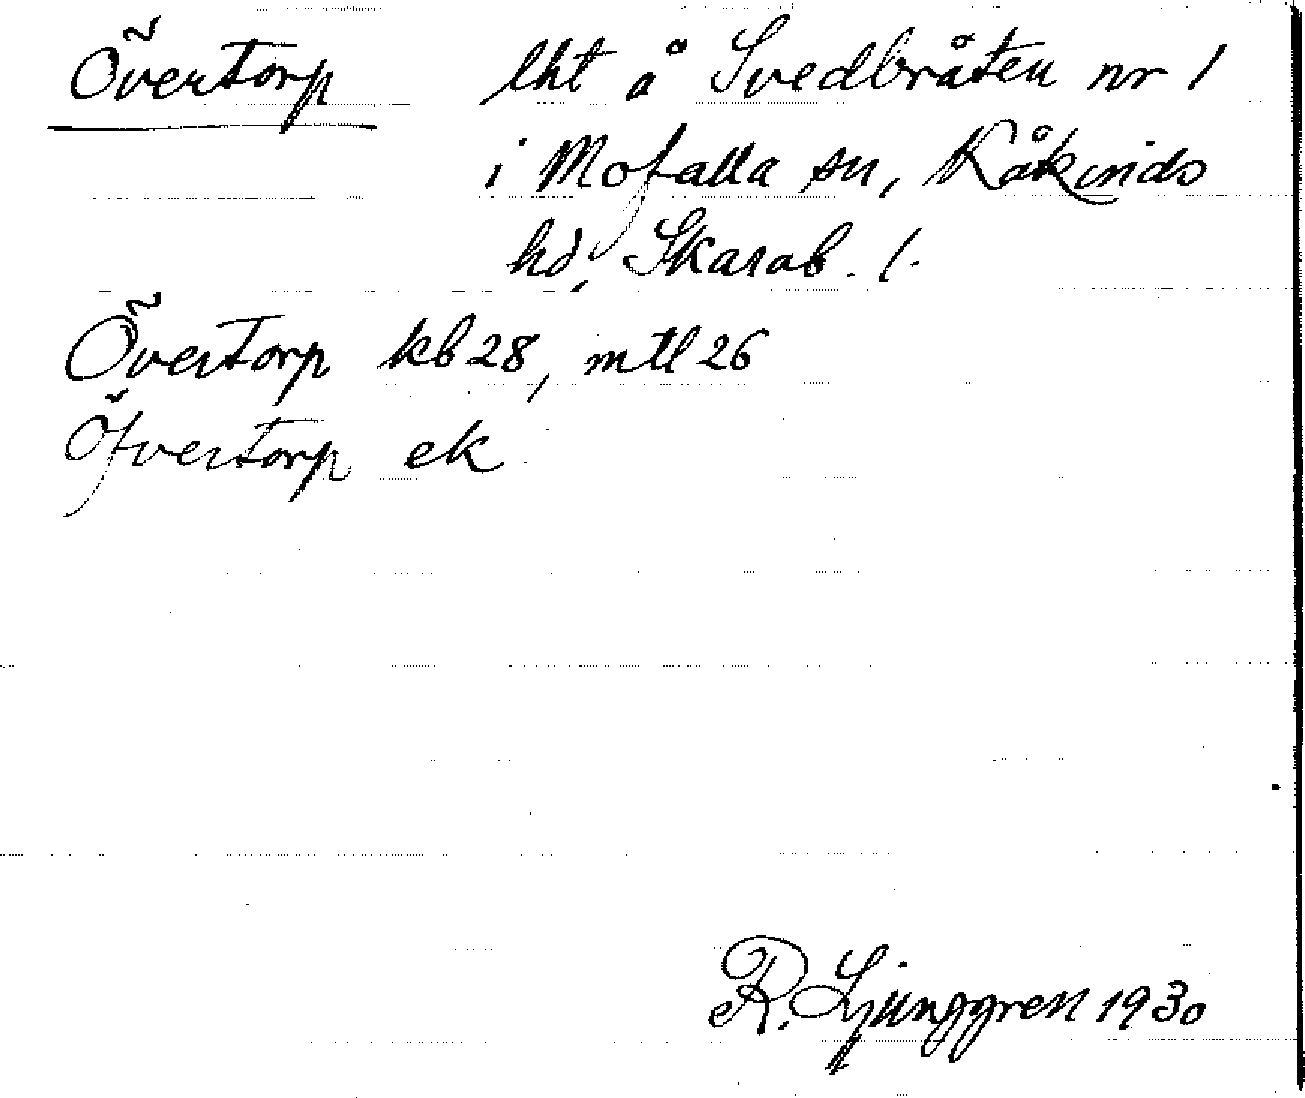 Övertorp lht å Svedbråten nr 1
i Mofalla sn, Kåkinds
hd, Skarab. l.
Övertorp kb 28, mtl 26
Öfvertorp ek
R. Ljunggren 1930